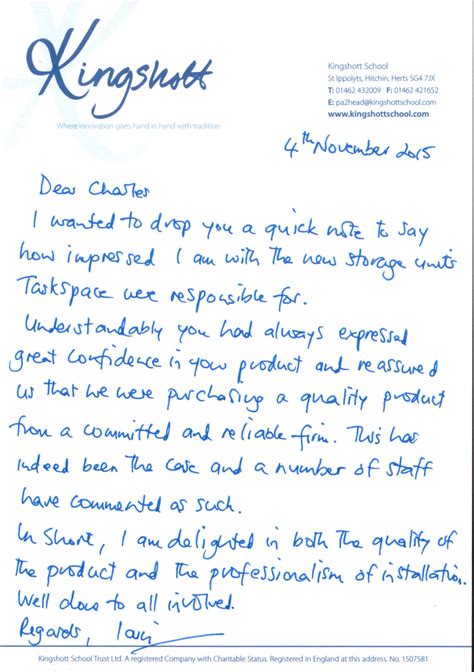 Kingshott
Where innovation goes hand in hand with tradition
Kingshott School
St Ippolyts, Hitchin, Herts SG4 7JX
T: 01462 432009 F: 01462 421652
E: pa2head@kingshottschool.com
www.kingshottschool.com
4th November 2015
Dear Charles
I wanted to drop you a quick note to say
how impressed I am with the new storage units
Taskspace were responsible for.
Understandably you had always expressed
great confidence in your product and reassured
us that we were purchasing a quality product
from a committed and reliable firm. This has
indeed been the case and a number of staff
have commented as such.
In short, I am delighted in both the quality of
the product and the professionalism of installation.
Well done to all involved.
Regards, Iain
Kingshott School Trust Ltd. A registered Company with Charitable Status. Registered in England at this address. No. 1507581